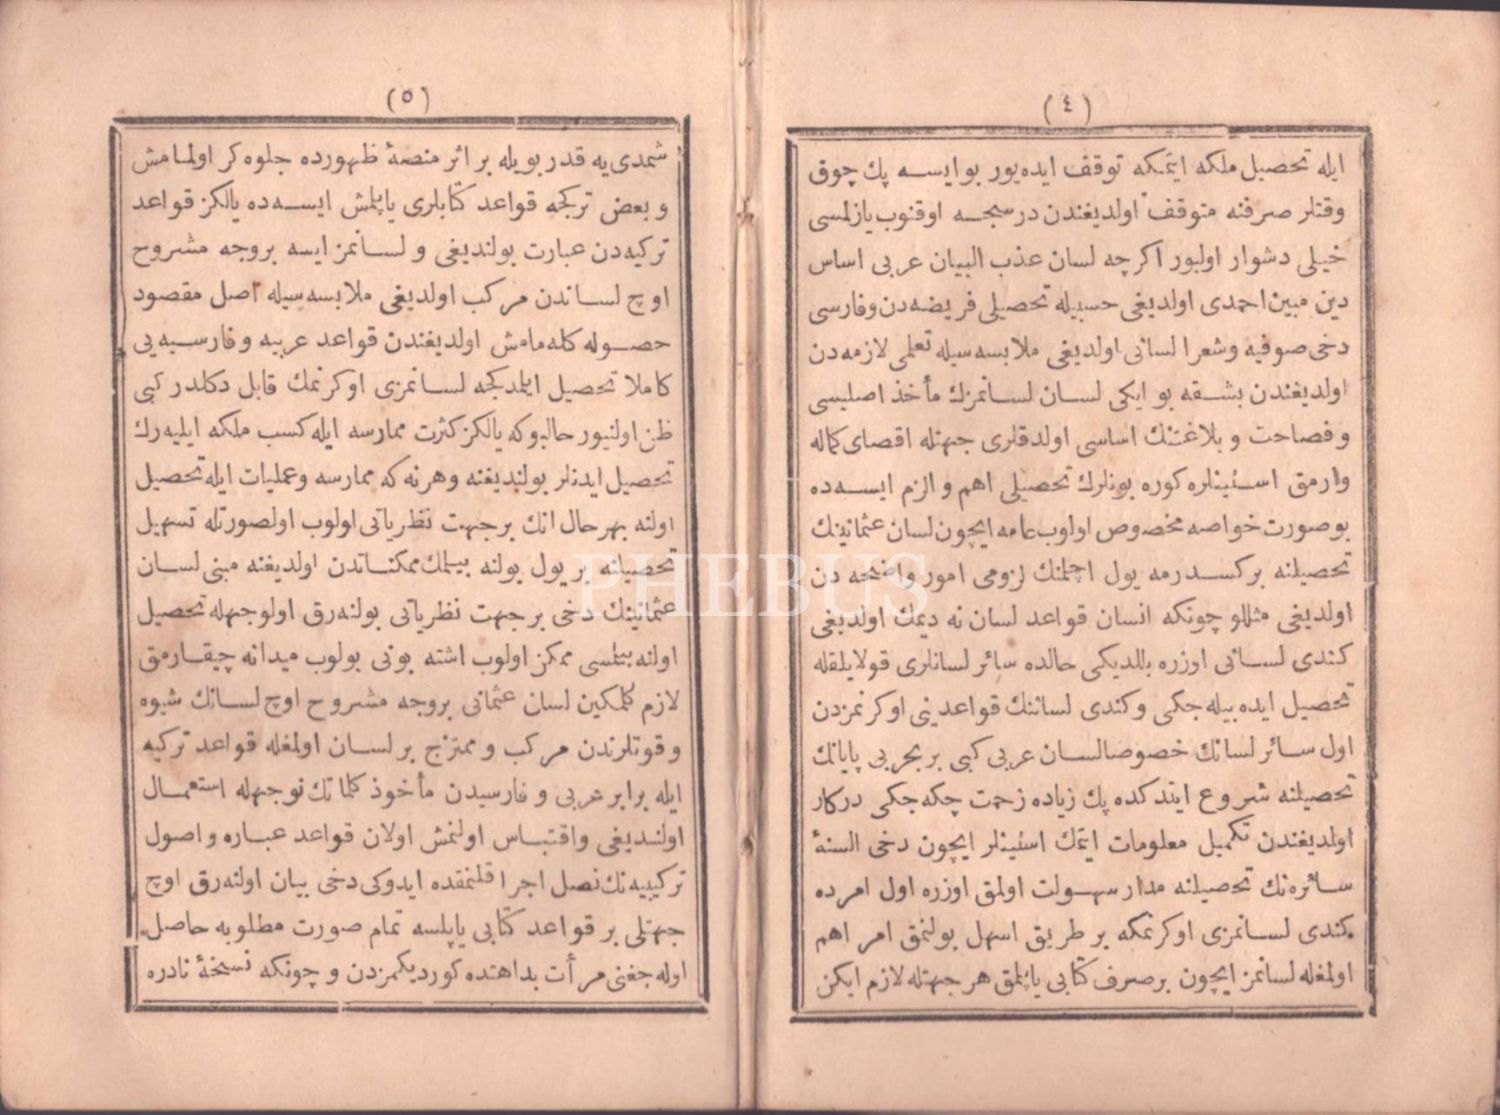 (٤)
ایله تحصیل ملکه ایتمکه توقف ایده‌یور بو ایسه پك چوق
وقتلر صرفنه متوقف اولدیغندن درسجه اوقنوب یازلمسی
خیلی دشوار اولیور اکرچه لسان عذب البیان عربی اساس
دین مبین احمدی اولدیغی حسبیله تحصیلی فریضه‌دن و فارسی
دخی صوفیه و شعرا لسانی اولدیغی ملابسه‌سیله تعلمی لازمه‌دن
اولدیغندن بشقه بو ایکی لسان لسانمزك مأخذ اصلیسی
و فصاحت و بلاغتنك اساسی اولدقلری جهتله اقصای کماله
وارمق استینلره کوره بونلرك تحصیلی اهم و الزم ایسه‌ده
بو صورت خواصه مخصوص اولوب عامه ایچون لسان عثمانینك
تحصیلنه برکسدرمه یول اچلمنك لزومی امور واضحه‌دن
اولدیغی مثللو چونکه انسان قواعد لسان نه دیمك اولدیغی
کندی لسانی اوزره بللدیکی حالده سائر لسانلری قولایلقله
تحصیل ایده بیله‌جکی و کندی لساننك قواعدینی اوکرنمزدن
اول سائر لسانك خصوصا لسان عربی کبی بر بحر بی پایانك
تحصیلنه شروع ایتدکده پك زیاده زحمت چکه‌جکی درکار
اولدیغندن تکمیل معلومات ایتمك استینلر ایچون دخی السنهٔ
سائره‌نك تحصیلنه مدار سهولت اولمق اوزره اول امرده
کندی لسانمزی اوکرنمکه بر طریق اسهل بولنمق امر اهم
اولمغله لسانمز ایچون بر صرف کتابی یاپلمق هر جهتله لازم ایکن
(٥)
شمدی‌یه قدر بویله بر اثر منصهٔ ظهورده جلوه‌کر اولمامش
و بعض ترکجه قواعد کتابلری یاپلمش ایسه‌ده یالکز قواعد
ترکیه‌دن عبارت بولندیغی و لسانمز ایسه بروجه مشروح
اوچ لساندن مرکب اولدیغی ملابسه‌سیله اصل مقصود
حصوله کله‌مامش اولدیغندن قواعد عربیه و فارسیه‌یی
کاملا تحصیل ایلمدکجه لسانمزی اوکرنمك قابل دکلدر کبی
ظن اولنیور حالبوکه یالکز کثرت ممارسه ایله کسب ملکه ایلیه‌رك
تحصیل ایدنلر بولندیغنه و هرنه‌که ممارسه و عملیات ایله تحصیل
اولنه بهرحال انك بر جهت نظریاتی اولوب اولصورتله تسهیل
تحصیلنه بر یول بولنه بیلمك ممکناتدن اولدیغنه مبنی لسان
عثمانینك دخی بر جهت نظریاتی بولنه‌رق اولوجهله تحصیل
اولنه بیلمسی ممکن اولوب اشته بونی بولوب میدانه چیقارمق
لازم کلمکین لسان عثمانی بروجه مشروح اوچ لسانك شیوه
و قوتلرندن مرکب و ممتزج بر لسان اولمغله قواعد ترکیه
ایله برابر عربی و فارسیدن مأخوذ کلماتك نوجهله استعمال
اولندیغی و اقتباس اولنمش اولان قواعد عباره و اصول
ترکیبیه‌نك نصل اجرا قلنمقده ایدوکی دخی بیان اولنه‌رق اوچ
جهتلی بر قواعد کتابی یاپلسه تمام صورت مطلوبه حاصل
اوله‌جغنی مرأت بداهتده کوردیکمزدن و چونکه نسخهٔ نادره
PHEBUS